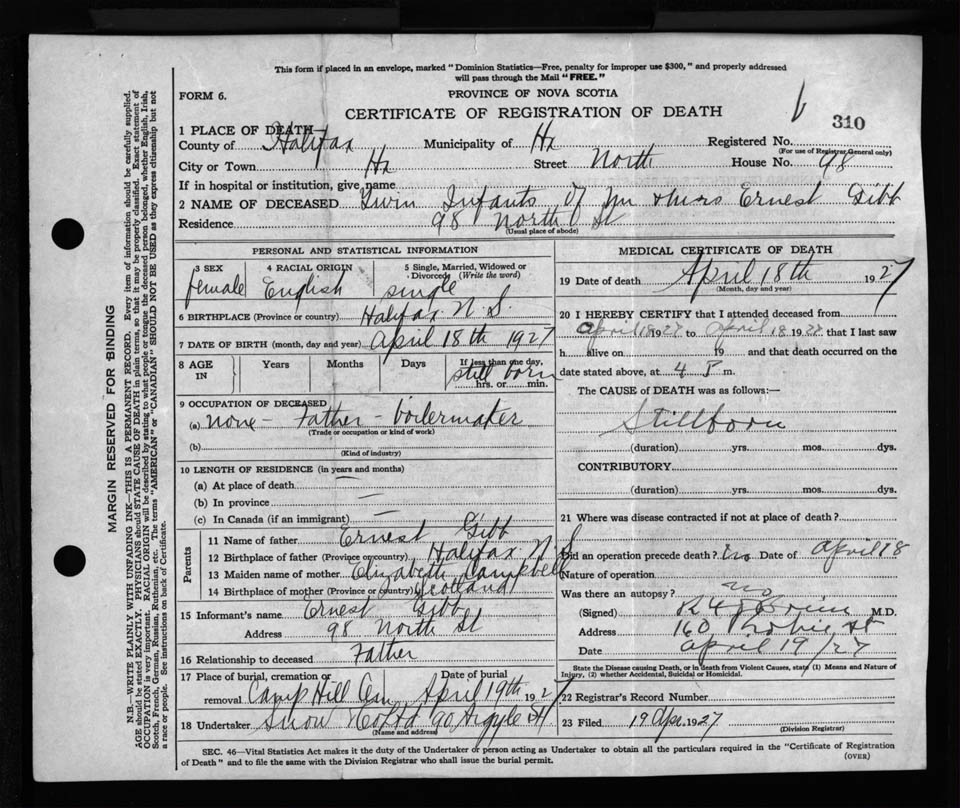 This form if placed in an envelope, marked "Dominion Statistics—Free, penalty for improper use $300," and properly addressed
will pass through the Mail "FREE."
FORM 6.
PROVINCE OF NOVA SCOTIA
CERTIFICATE OF REGISTRATION OF DEATH
310
1 PLACE OF DEATH—
County of Halifax Municipality of Hx Registered No.
(For use of Registrar General only)
City or Town Hx Street North House No. 98
If in hospital or institution, give name
2 NAME OF DECEASED Twin Infants Of Mr & Mrs Ernest Gibb
Residence 98 North St
(Usual place of abode)
PERSONAL AND STATISTICAL INFORMATION
3 SEX 4 RACIAL ORIGIN 5 Single, Married, Widowed or Divorced (Write the word)
female English single
6 BIRTHPLACE (Province or country) Halifax N.S.
7 DATE OF BIRTH (month, day and year) April 18th 1927
8 AGE IN Years Months Days If less than one day,
still born
hrs. or min.
9 OCCUPATION OF DECEASED
(a) none - Father - boilermaker
(Trade or occupation or kind of work)
(b)
(Kind of industry)
10 LENGTH OF RESIDENCE (in years and months)
(a) At place of death —
(b) In province —
(c) In Canada (if an immigrant) —
Parents
11 Name of father Ernest Gibb
12 Birthplace of father (Province or country) Halifax N.S
13 Maiden name of mother Elizabeth Campbell
14 Birthplace of mother (Province or country) Scotland
15 Informant's name Ernest Gibb
Address 98 North St
16 Relationship to deceased Father
17 Place of burial, cremation or Date of burial
removal Camp Hill Cem April 19th 1927
18 Undertaker Snow & Co Ltd 90 Argyle St
(Name and address)
MEDICAL CERTIFICATE OF DEATH
19 Date of death April 18th 1927
(Month, day and year)
20 I HEREBY CERTIFY that I attended deceased from
April 18 1927 to April 18 1927 that I last saw
h alive on 19 and that death occurred on the
date stated above, at 4 P m.
The CAUSE OF DEATH was as follows:—
Stillborn
(duration) yrs. mos. dys.
CONTRIBUTORY
(duration) yrs. mos. dys.
21 Where was disease contracted if not at place of death?
Did an operation precede death? no Date of April 18
Nature of operation
Was there an autopsy? no
(Signed) O'Brien M.D.
Address 160 Robie St
Date April 19/27
State the Disease causing Death, or in death from Violent Causes, state (1) Means and Nature of
Injury, (2) whether Accidental, Suicidal or Homicidal.
22 Registrar's Record Number
23 Filed 19 Apr. 1927
(Division Registrar)
SEC. 46—Vital Statistics Act makes it the duty of the Undertaker or person acting as Undertaker to obtain all the particulars required in the "Certificate of Registration
of Death" and to file the same with the Division Registrar who shall issue the burial permit.
(OVER)
MARGIN RESERVED FOR BINDING
N.B.—WRITE PLAINLY WITH UNFADING INK—THIS IS A PERMANENT RECORD. Every item of information should be carefully supplied.
AGE should be stated EXACTLY. PHYSICIANS should STATE CAUSE OF DEATH in plain terms, so that it may be properly classified. Exact statement of
OCCUPATION is very important. RACIAL ORIGIN will be described by stating to what people or tongue the deceased person belonged, whether English, Irish,
Scotch, French, German, Russian, Ruthenian, etc. The terms "AMERICAN" or "CANADIAN" SHOULD NOT BE USED as they express citizenship but not
a race or people. See instructions on back of Certificate.